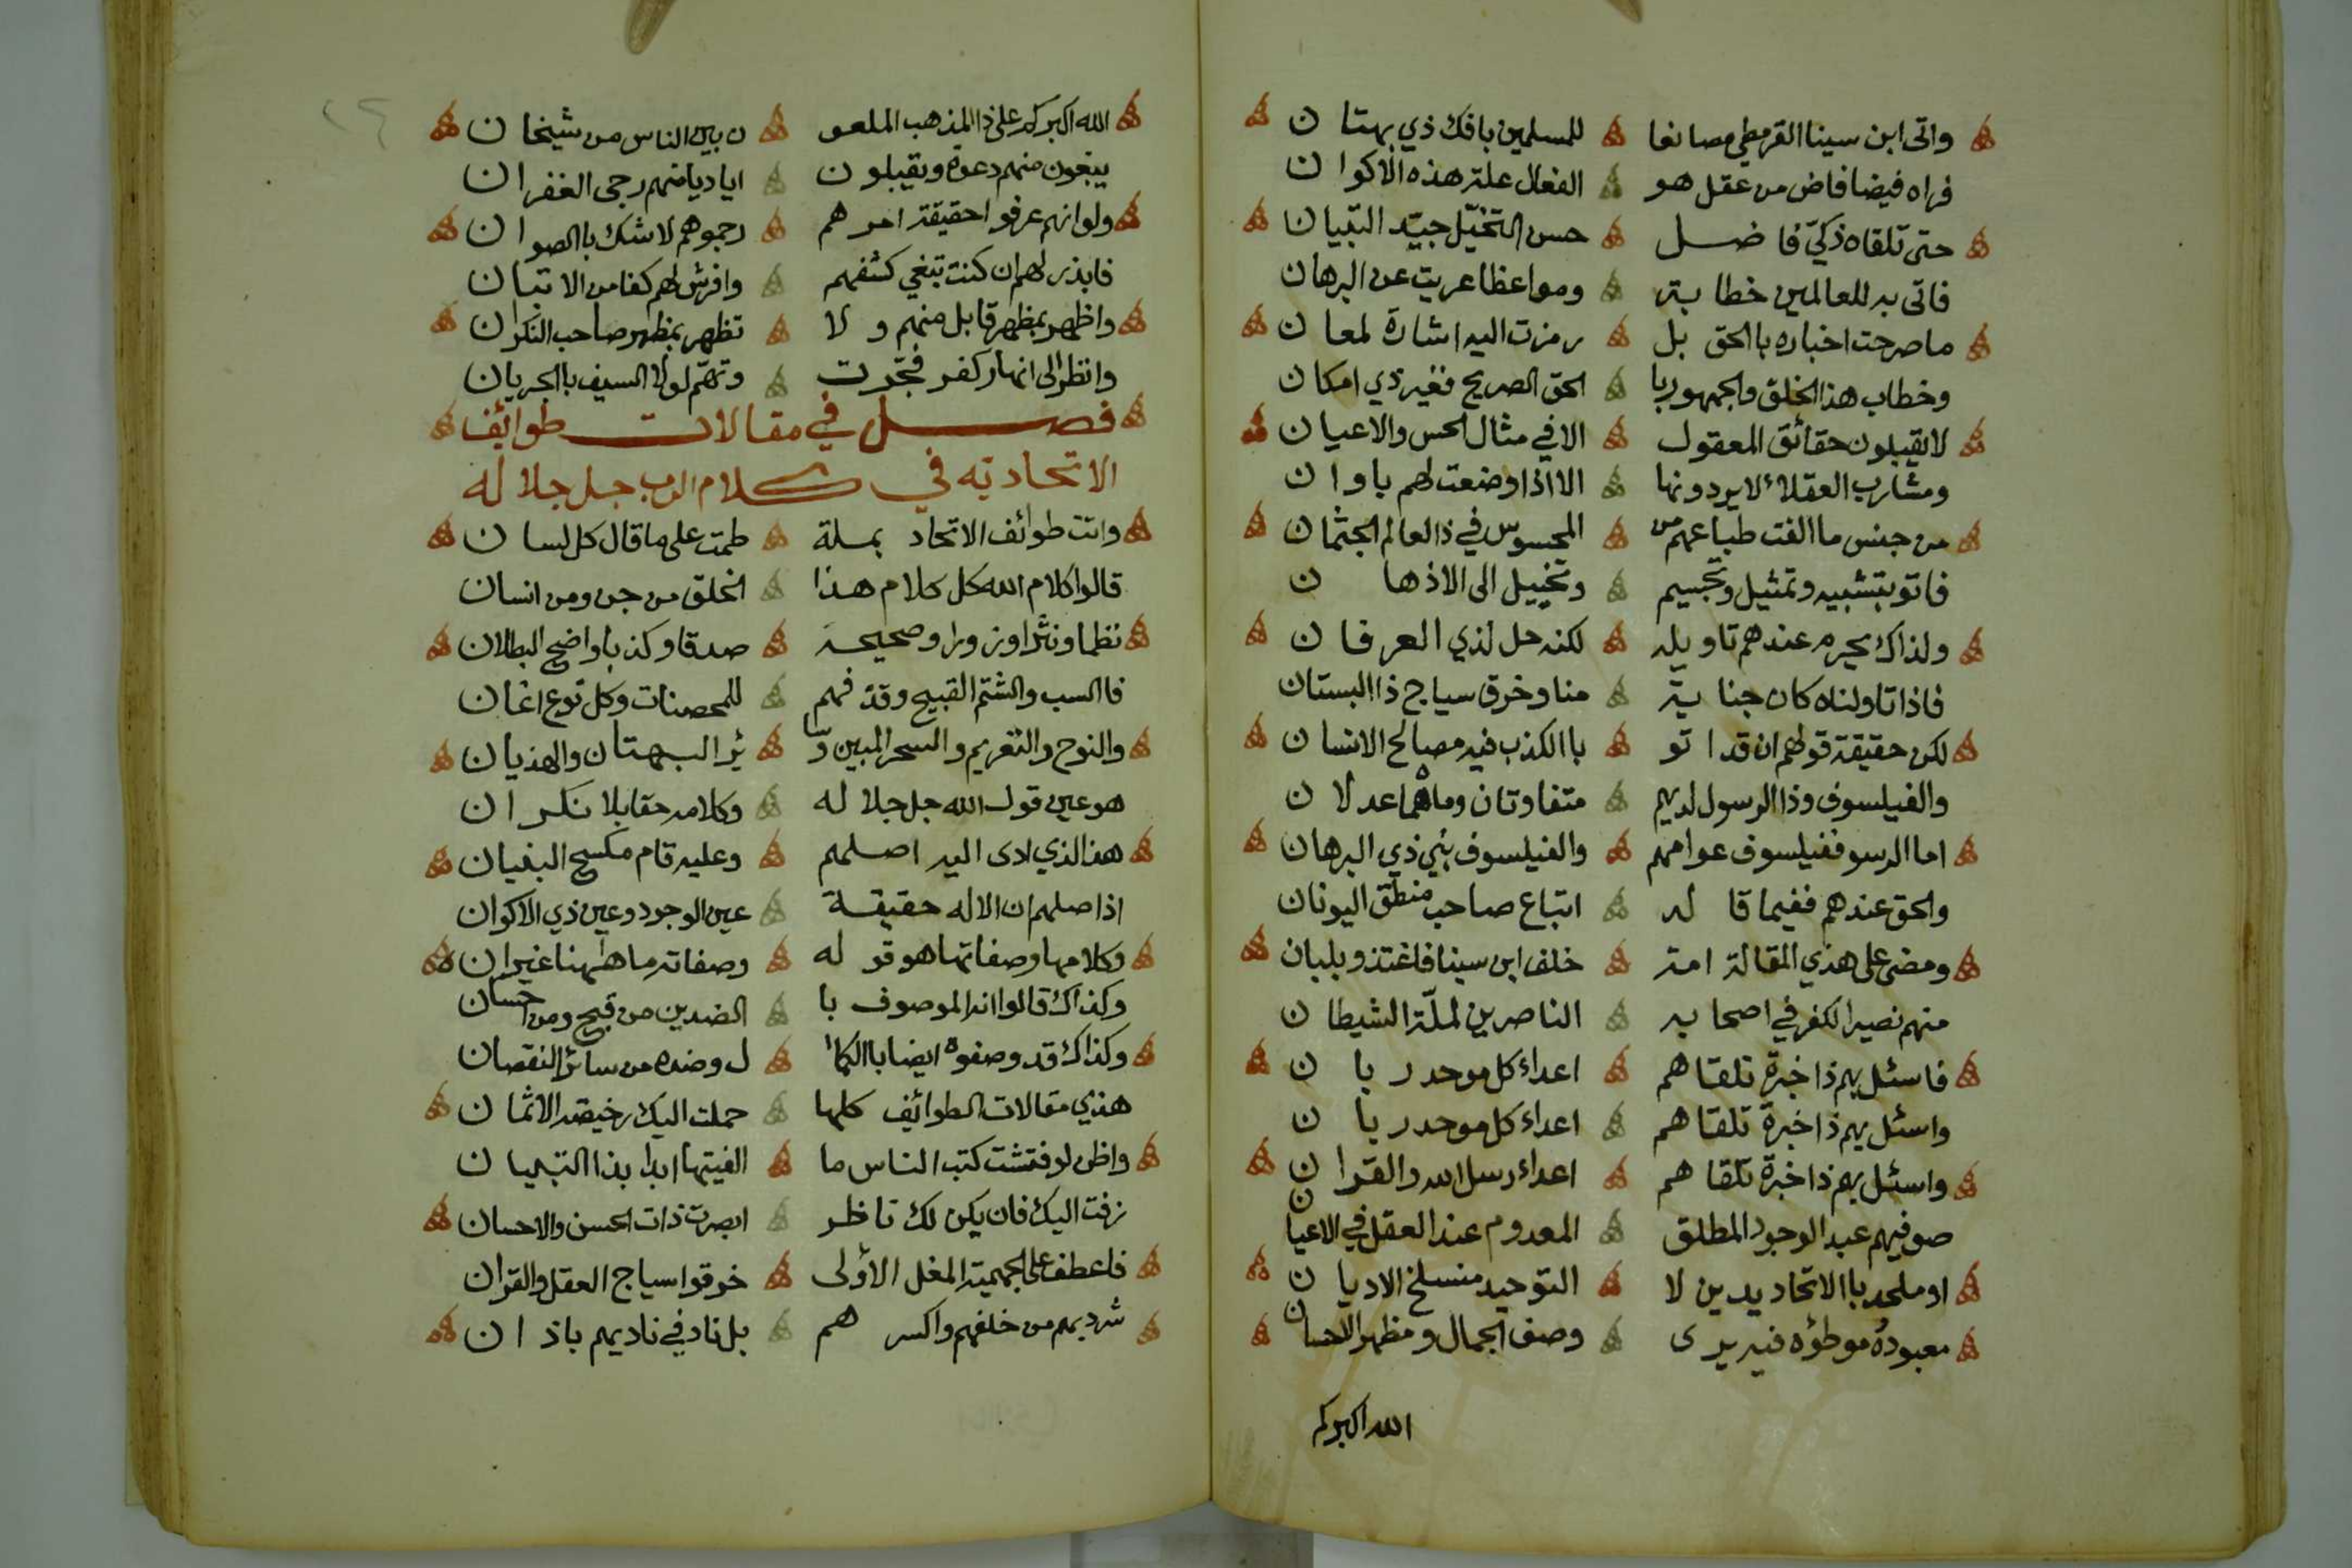 واتى ابن سينا القرمطي مصانعا للمسلمين بافك ذي بهتان
فراه فيضا فاض من عقل هو الفعال علة هذه الاكوان
حتى تلقاه ذكيّ فاضل حسن التخيّل جيّد التبيان
فاتى به للعالمين خطابة ومواعظا عريت عن البرهان
ما صرحت اخباره باالحق بل رمزت اليه اشارة لمعان
وخطاب هذا الخلق والجمهور با الحق الصريح فغير ذي امكان
لا يقبلون حقائق المعقول الا في مثال الحس والاعيان
ومشارب العقلاء لا يردونها الا اذا وضعت لهم باوان
من جنس ما الفت طباعهم من المحسوس في ذا العالم الجثمان
فاتو بتشبيه وتمثيل وتجسيم وتخييل الى الاذهان
ولذاك يحرم عندهم تاويله لكنه حل لذي العرفان
فاذا تاولناه كان جناية منا وخرق سياج ذا البستان
لكن حقيقة قولهم ان قد اتو باالكذب فيه مصالح الانسان
والفيلسوف وذا الرسول لديهم متفاوتان وما هما عدلان
اما الرسو ففيلسوف عوامهم والفيلسوف نبي ذي البرهان
والحق عندهم ففيما قاله اتباع صاحب منطق اليونان
ومضى على هذي المقالة امة خلف ابن سينا فاغتذو بلبان
منهم نصير الكفر في اصحابه الناصرين لملّة الشيطان
فاسئل بهم ذا خبرة تلقاهم اعداء كل موحد ربان
واسئل بهم ذا خبرة تلقاهم اعداء كل موحد ربان
واسئل بهم ذا خبرة تلقاهم اعداء رسل الله والقران
صوفيهم عبد الوجود المطلق المعدوم عند العقل في الاعيان
او ملحد باالاتحاد يدين لا التوحيد منسلخ الاديان
معبوده موطؤه فيه يرى وصف الجمال ومظهر الاحسان
الله اكبر كم
الله اكبر كم على ذا المذهب الملعو ن بين الناس من شيخان
يبغون منهم دعوة ويقبلون اياديا منهم رجى الغفران
ولو انهم عرفو احقيقة امرهم رجموهم لا شك باالصوان
فابذر لهم ان كنت تبغي كشفهم وافرش لهم كفا من الاتبان
واظهر بمظهر قابل منهم ولا تظهر بمظهر صاحب النكران
وانظر الى انهار كفر فجّرت وتهمّ لولا السيف باالجريان
فصل في مقالات طوائف
الاتحاديه في كلام الرب جل جلاله
واتت طوائف الاتحاد بملة طمت على ما قال كل لسان
قالوا كلام الله كل كلام هذا الخلق من جن ومن انسان
نظما ونثرا وزورا وصحيحة صدقا وكذبا واضح البطلان
فاالسب والشتم القبيح وقذفهم للمحصنات وكل نوع اغان
والنوح والتعزيم والسحر المبين وسا ئر البهتان والهذيان
هو عين قول الله جل جلاله وكلامه حقا بلا نكران
هذا الذي ادى اليه اصلهم وعليه قام مكسح البنيان
اذ اصلهم ان الاله حقيقة عين الوجود وعين ذي الاكوان
وكلامها وصفاتها هو قوله وصفاته ما هاهنا غيران
وكذاك قالوا انه الموصوف با الضدين من قبح ومن احسان
وكذاك قد وصفوه ايضا باالكما ل وضده من سائر النقصان
هذي مقالات الطوائف كلها حملت اليك رخيصة الاثمان
واظن لو فتشت كتب الناس ما الفيتها ابدا بذا التبيان
زفت اليك فان يكن لك ناظر ابصرت ذات الحسن والاحسان
فاعطف على الجهمية المغل الأولى خرقوا سياج العقل والقران
شرد بهم من خلفهم واكسرهم بل ناد في ناديهم باذان